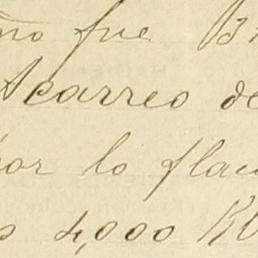 ño fue
Acarreo de
por lo flac
s 4,000 Kl